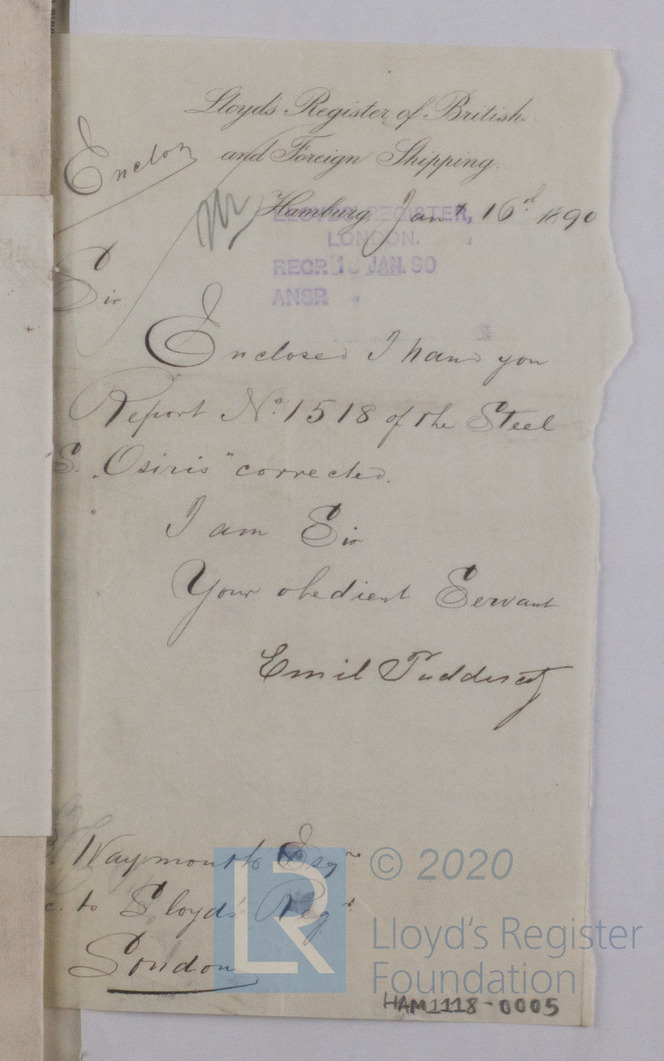 Lloyd's Register of British
and Foreign Shipping.
Enclos
Hamburg, Jany 16th 1890
LLOYD'S REGISTER,
LONDON.
RECD 1 JAN. 90
ANSR
Sir
Enclosed I hand you
Report No. 1518 of the Steel
S. "Osiris" corrected.
I am Sir
Your obedient Servant
Emil
Waymouth Esqre
c. to Lloyd's Regr
London
LR
© 2020
Lloyd's Register
Foundation
HAM1118-0005